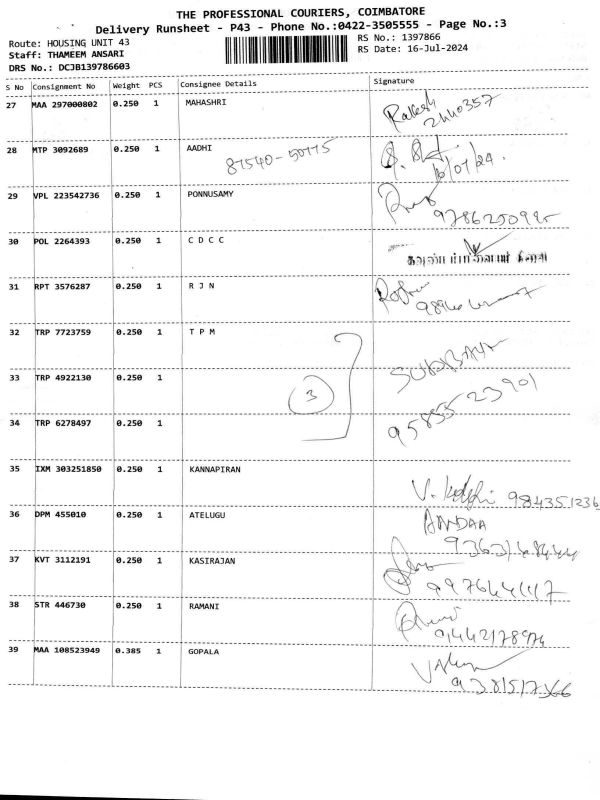 THE PROFESSIONAL COURIERS, COIMBATORE
Delivery Runsheet - P43 - Phone No.:0422-3505555 - Page No.:3
Route: HOUSING UNIT 43
RS No.: 1397866
Staff: THAMEEM ANSARI
RS Date: 16-Jul-2024
DRS No.: DCJB139786603
S No Consignment No Weight PCS Consignee Details Signature
27 MAA 297000802 0.250 1 MAHASHRI Rakesh
2440357
28 MTP 3092689 0.250 1 AADHI
87540-50775
16/07/24.
29 VPL 223542736 0.250 1 PONNUSAMY
30 POL 2264393 0.250 1 C D C C
31 RPT 3576287 0.250 1 R J N
32 TRP 7723759 0.250 1 T P M
33 TRP 4922130 0.250 1
3
34 TRP 6278497 0.250 1
95855 23901
35 IXM 303251850 0.250 1 KANNAPIRAN
984351236
36 DPM 455010 0.250 1 ATELUGU
37 KVT 3112191 0.250 1 KASIRAJAN
38 STR 446730 0.250 1 RAMANI
39 MAA 108523949 0.385 1 GOPALA